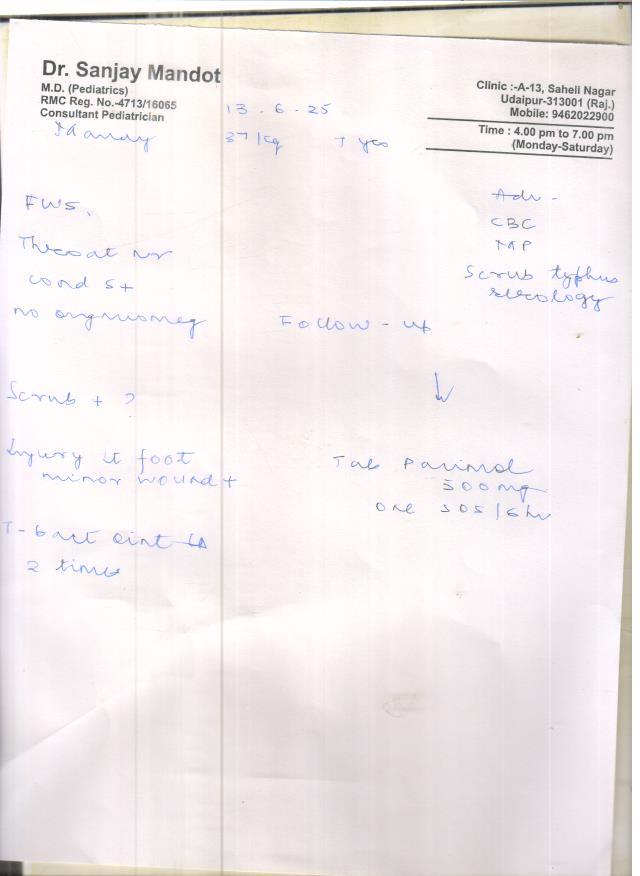 Dr. Sanjay Mandot
M.D. (Pediatrics)
RMC Reg. No.-4713/16065
Consultant Pediatrician
Clinic :-A-13, Saheli Nagar
Udaipur-313001 (Raj.)
Mobile: 9462022900
Time : 4.00 pm to 7.00 pm
(Monday-Saturday)
13.6.25
37 kg
Adv -
CBC
MP
Scrub typhus
serology
FWS.
Throat nr
cond s+
no
Follow-up
Scrub + ?
Injury Lt foot
minor wound +
Tab
500 mg
one SOS/6 hr
T-bact oint LA
2 times